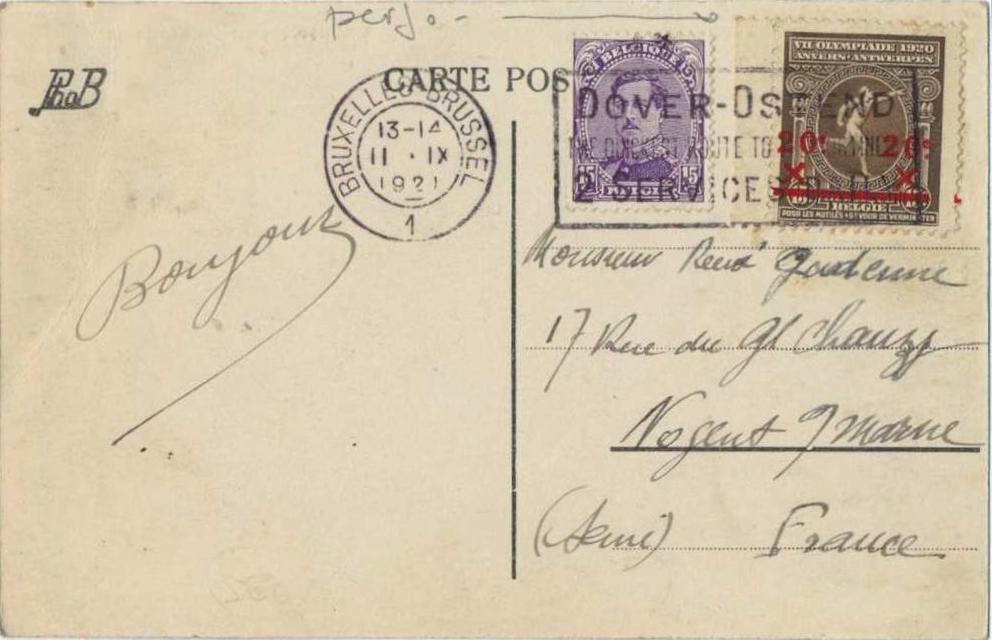 perfo -
PhoB
CARTE POS
BRUXELLES 1 BRUSSEL
13-14
11 · IX
1921
1
BELGIQUE
15 BELGIË 15
DOVER-OSTEND
THE QUICKEST ROUTE TO
2 SERVICES
VII OLYMPIADE 1920
ANVERS·ANTWERPEN
20c 20c
BELGIË
POUR LES MUTILÉS * ST VOOR DE VERMINKTEN
Bonjour
Monsieur René
17 Rue du Gl Chanzy
Nogent s/ Marne
(Seine) France